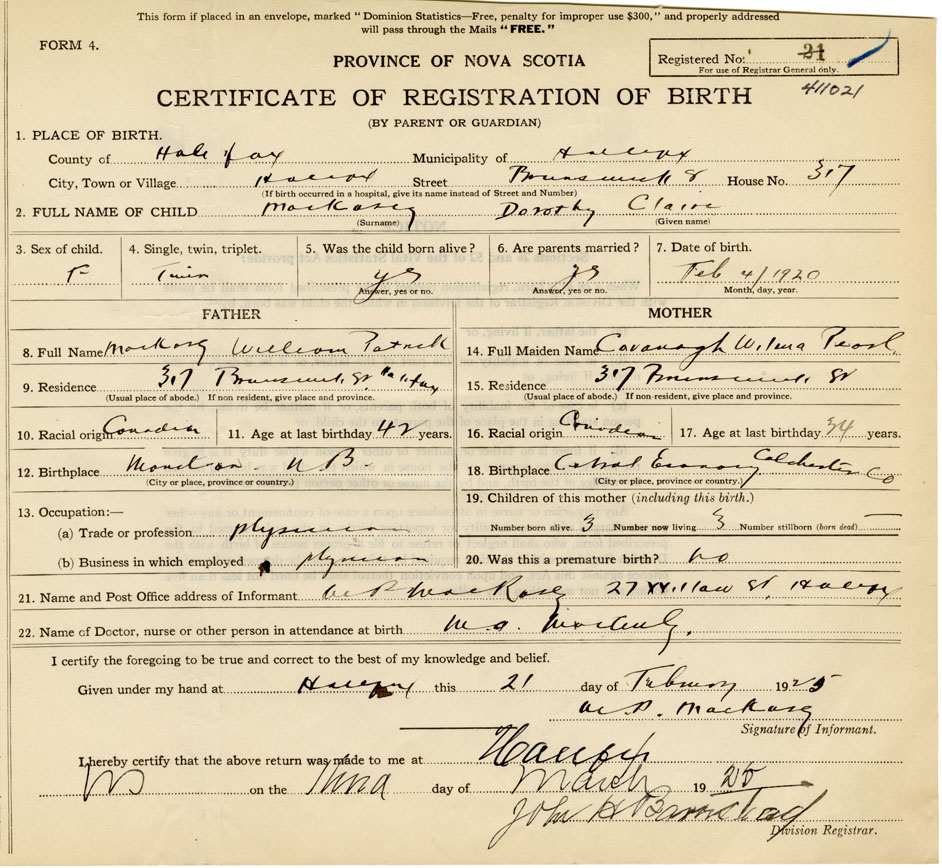 This form if placed in an envelope, marked "Dominion Statistics—Free, penalty for improper use $300," and properly addressed
will pass through the Mails "FREE."
FORM 4.
Registered No. 21
For use of Registrar General only.
411021
PROVINCE OF NOVA SCOTIA
CERTIFICATE OF REGISTRATION OF BIRTH
(BY PARENT OR GUARDIAN)
1. PLACE OF BIRTH.
County of Halifax Municipality of Halifax
City, Town or Village Halifax Street Brunswick St House No. 317
(If birth occurred in a hospital, give its name instead of Street and Number)
2. FULL NAME OF CHILD MacKasey Dorothy Claire
(Surname) (Given name)
3. Sex of child. 4. Single, twin, triplet. 5. Was the child born alive? 6. Are parents married? 7. Date of birth.
F Twin yes yes Feb 4/1920
Answer, yes or no. Answer, yes or no. Month, day, year.
FATHER MOTHER
8. Full Name MacKasey William Patrick 14. Full Maiden Name Cavanagh Wilma Pearl
9. Residence 317 Brunswick St Halifax 15. Residence 317 Brunswick St
(Usual place of abode.) If non resident, give place and province. (Usual place of abode.) If non-resident, give place and province.
10. Racial origin Canadian 11. Age at last birthday 42 years. 16. Racial origin Canadian 17. Age at last birthday 34 years.
12. Birthplace Moncton N B. 18. Birthplace Central Economy Colchester Co
(City or place, province or country.) (City or place, province or country.)
19. Children of this mother (including this birth.)
13. Occupation:—
Number born alive. 3 Number now living. 3 Number stillborn (born dead) —
(a) Trade or profession physician
(b) Business in which employed physician 20. Was this a premature birth? no
21. Name and Post Office address of Informant W P MacKasey 27 Willow St. Halifax
22. Name of Doctor, nurse or other person in attendance at birth M. A.
I certify the foregoing to be true and correct to the best of my knowledge and belief.
Given under my hand at Halifax this 21 day of February 1925
W. P. MacKasey
Signature of Informant.
I hereby certify that the above return was made to me at Halifax
NS on the third day of March 1925
John H Barnstead
Division Registrar.